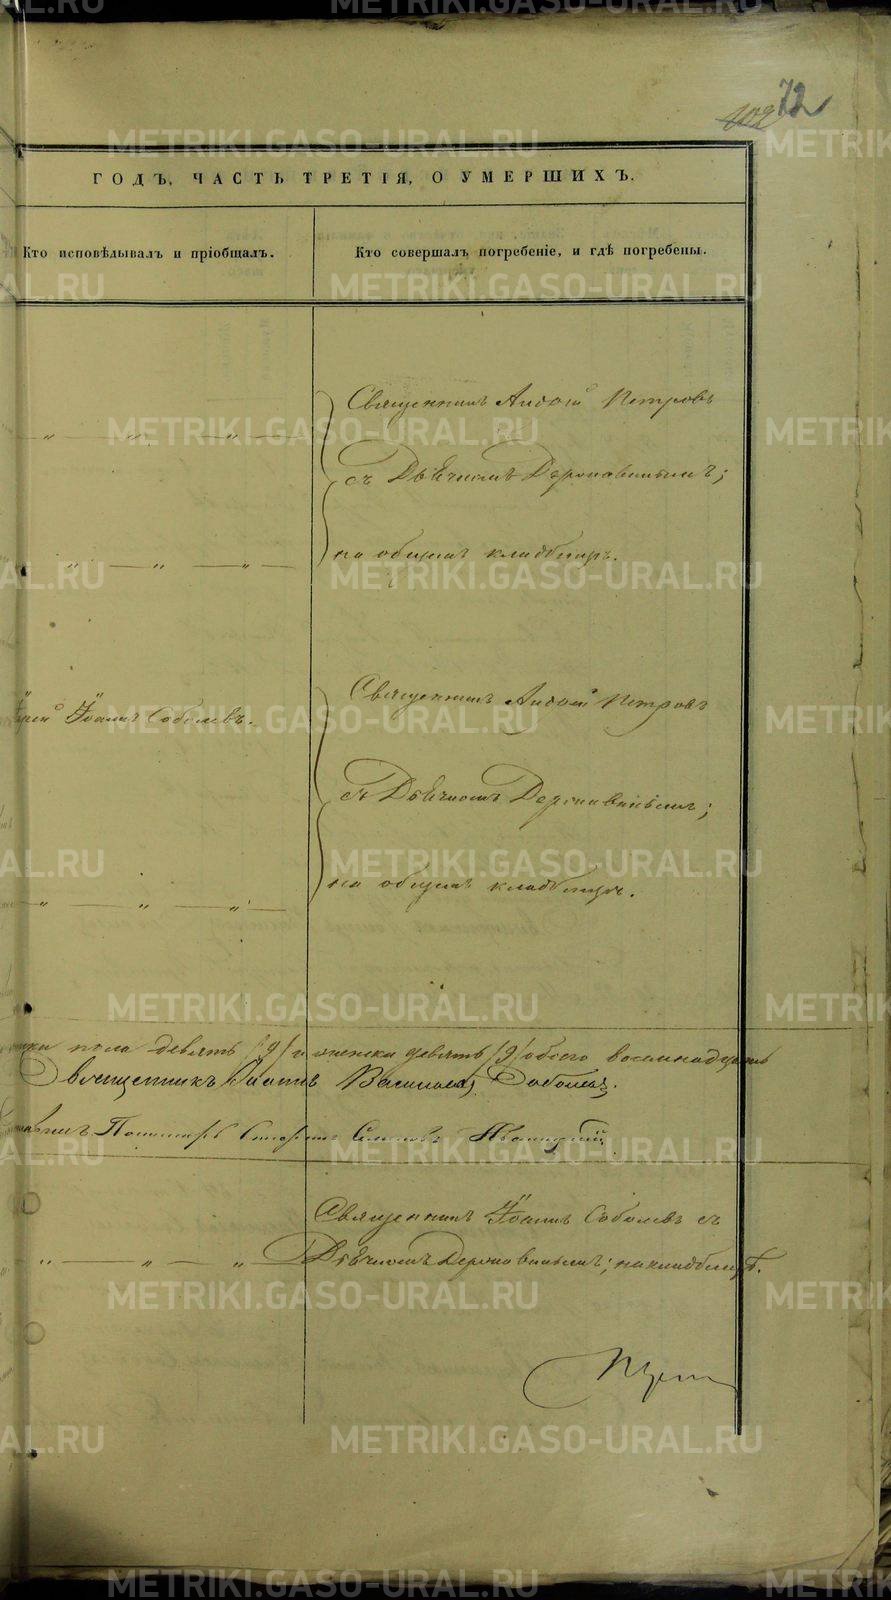 72
102
ГОДЪ, ЧАСТЬ ТРЕТІЯ, О УМЕРШИХЪ.
Кто исповѣдывалъ и пріобщалъ.
Кто совершалъ погребеніе, и гдѣ погребены.
Священникъ Петровъ
съ Дьячкомъ Державинымъ;
на общемъ кладбищѣ.
Іоаннъ Соболевъ.
Священникъ Петровъ
съ Дьячкомъ Державинымъ;
на общемъ кладбищѣ.
пола девять /9/ и женска девять /9/ обоего восемнадцать
Священникъ Іоаннъ Васильевъ Соболевъ.
Священникъ Іоаннъ Соболевъ съ
Дьячкомъ Державинымъ; на кладбищѣ.
METRIKI.GASO-URAL.RU